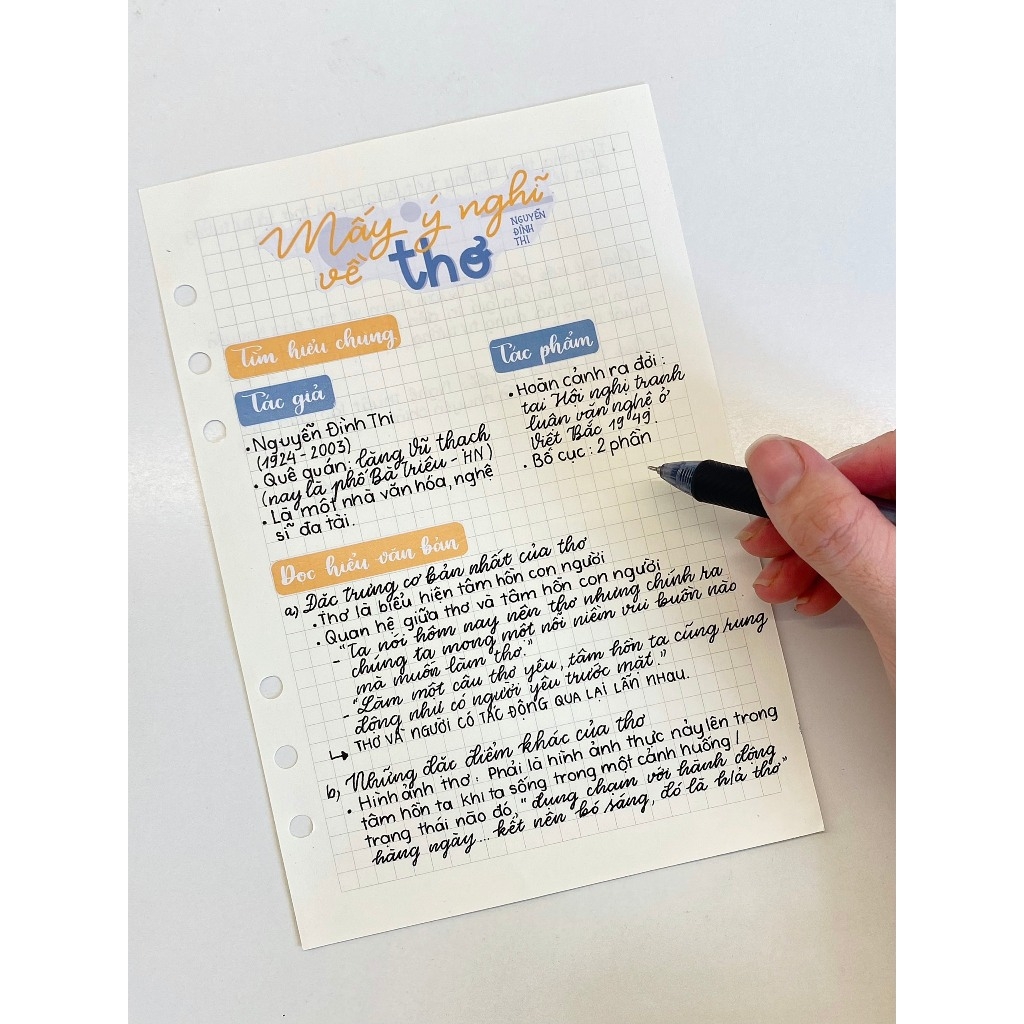 Mấy ý nghĩ
về thơ
NGUYỄN
ĐÌNH
THI
Tìm hiểu chung
Tác giả
• Nguyễn Đình Thi
(1924 - 2003)
• Quê quán: làng Vũ Thạch
(nay là phố Bà Triệu - HN)
• Là một nhà văn hóa, nghệ
sĩ đa tài.
Tác phẩm
• Hoàn cảnh ra đời :
tại Hội nghị tranh
luận văn nghệ ở
Việt Bắc 1949.
• Bố cục : 2 phần
Đọc hiểu văn bản
a) Đặc trưng cơ bản nhất của thơ
• Thơ là biểu hiện tâm hồn con người
• Quan hệ giữa thơ và tâm hồn con người
- "Ta nói hôm nay nên thơ nhưng chính ra
chúng ta mong một nỗi niềm vui buồn nào
mà muốn làm thơ."
- "Làm một câu thơ yêu, tâm hồn ta cũng rung
động như có người yêu trước mặt."
↳ THƠ VÀ NGƯỜI CÓ TÁC ĐỘNG QUA LẠI LẪN NHAU.
b) Những đặc điểm khác của thơ
• Hình ảnh thơ : Phải là hình ảnh thực nảy lên trong
tâm hồn ta khi ta sống trong một cảnh huống /
trạng thái nào đó, "đụng chạm với hành động
hàng ngày... kết nên bó sáng, đó là h/ả thơ"